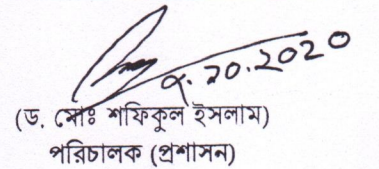 ৭.১০.২০২০
(ড. মোঃ শফিকুল ইসলাম)
পরিচালক (প্রশাসন)